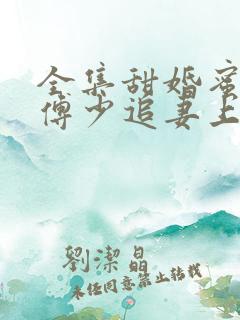 全集甜婚蜜
傅少追妻上
劉潔晶
未经同意禁止转载